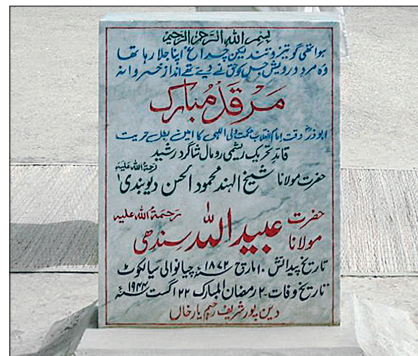 بسم اللہ الرحمٰن الرحیم
ہوا تھی گو تیز و تند لیکن چراغ اپنا جلا رہا تھا
وہ مرد درویش جس کو حق نے دیئے تھے انداز خسروانہ
مرقد مبارک
ابوذرؓ وقت امام انقلاب حکمت ولی اللہی کا امین بطل حریت
قائد تحریک ریشمی رومال شاگرد رشید
حضرت مولانا شیخ الہند محمود الحسن دیوبندی رحمۃ اللہ علیہ
حضرت مولانا عبید اللہ سندھی رحمۃ اللہ علیہ
تاریخ پیدائش ۱۰ مارچ ۱۸۷۲ء چیانوالی سیالکوٹ
تاریخ وفات ۲ رمضان المبارک ۲۲ اگست ۱۹۴۴ء
دین پور شریف رحیم یار خاں